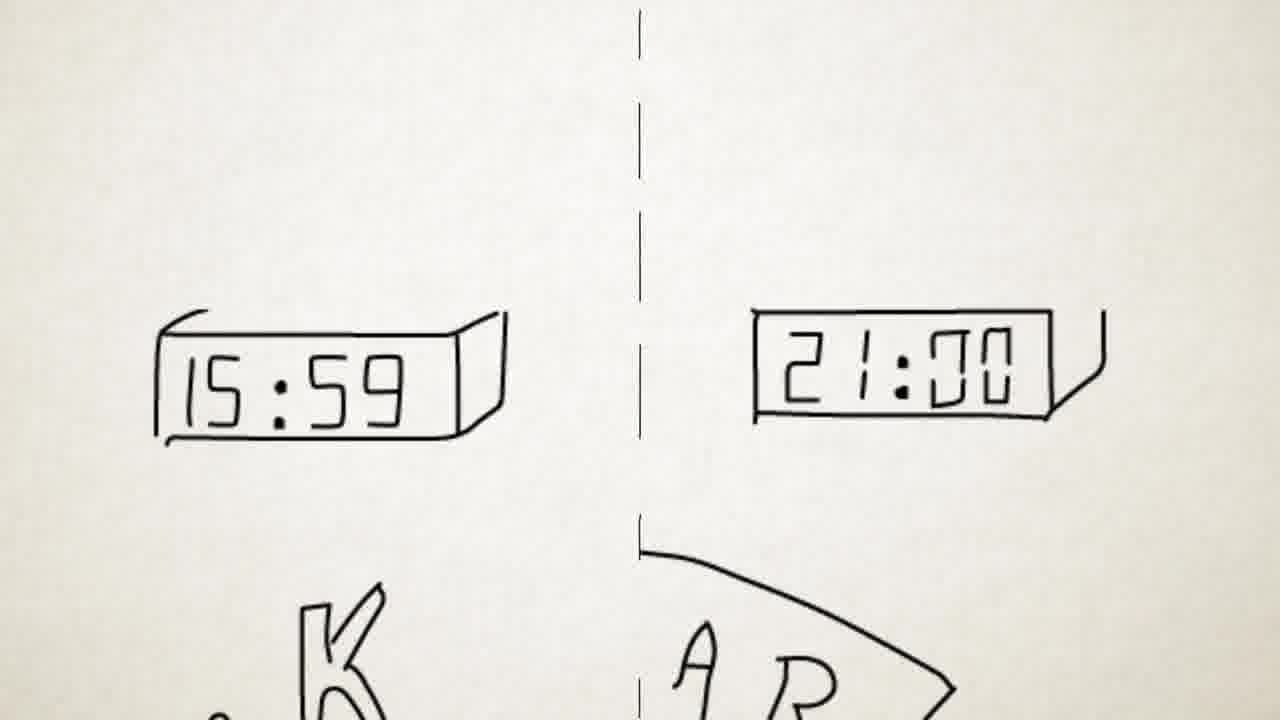 15:59
21:00
K
A R